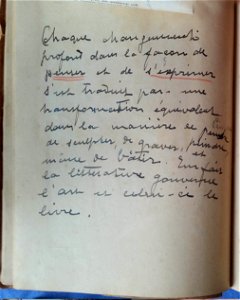 Chaque changement
profond dans la façon de
penser et de s'exprimer
s'est traduit par une
transformation équivalent
dans la manière de peindre,
de sculpter, de graver, et
même de bâtir. En fait
la littérature gouverne
l'art et celui-ci le
livre.